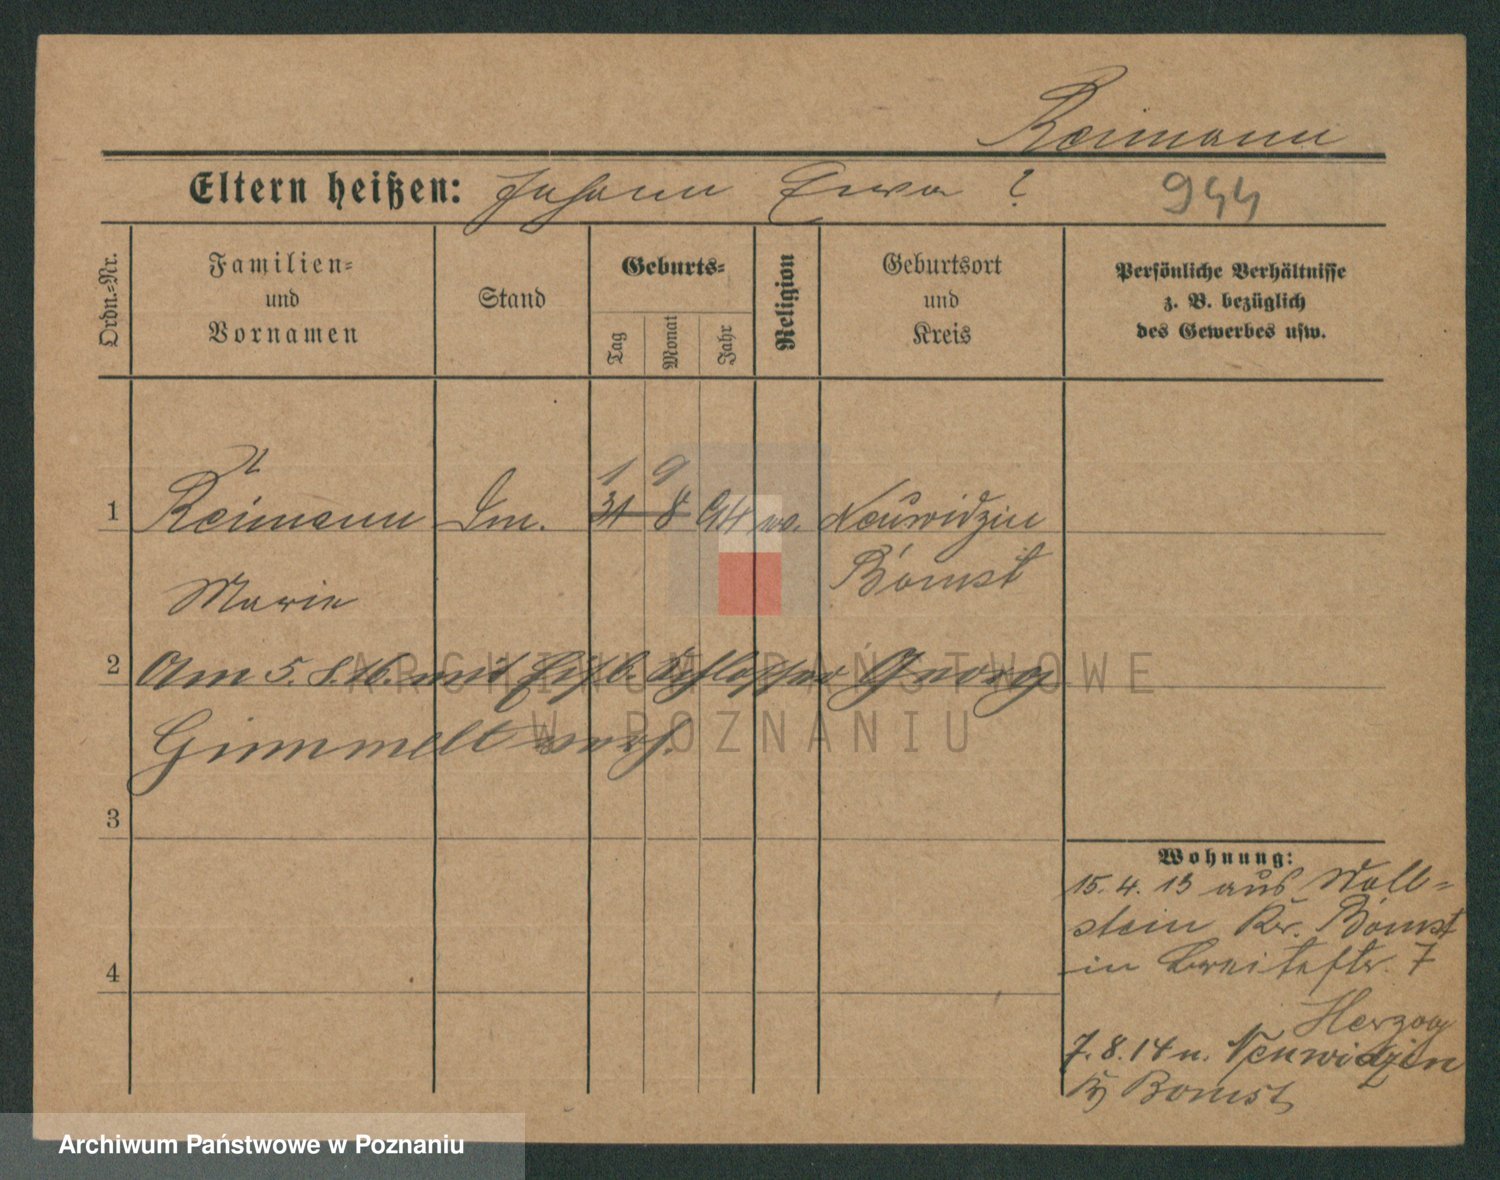 Reimann
Eltern heißen: Johann Ewa ? 944
Ordn.-Nr.
Familien-
und
Vornamen
Stand
Geburts-
Tag
Monat
Jahr
Religion
Geburtsort
und
Kreis
Persönliche Verhältnisse
z. B. bezüglich
des Gewerbes usw.
1 9
1 Reimann Dm. 31 8 94 Neuwidzim
Marie Bomst
2 Am 5. 8. 16. mit Eisb. Schlosser Georg
Gimmelt verh.
3
4
Wohnung:
15. 4. 13 aus Woll-
stein Kr. Bomst
in Breitestr. 7
Herzog
7. 8. 14 n. Neuwidzim
Bomst
ARCHIWUM PAŃSTWOWE
W POZNANIU
Archiwum Państwowe w Poznaniu